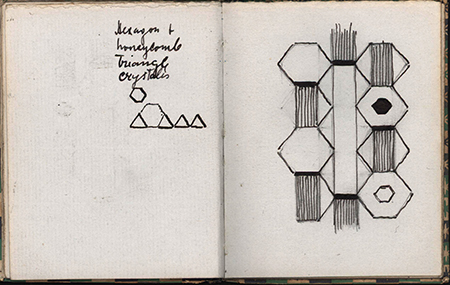 Hexagon +
honeycomb
Triangle
crystals